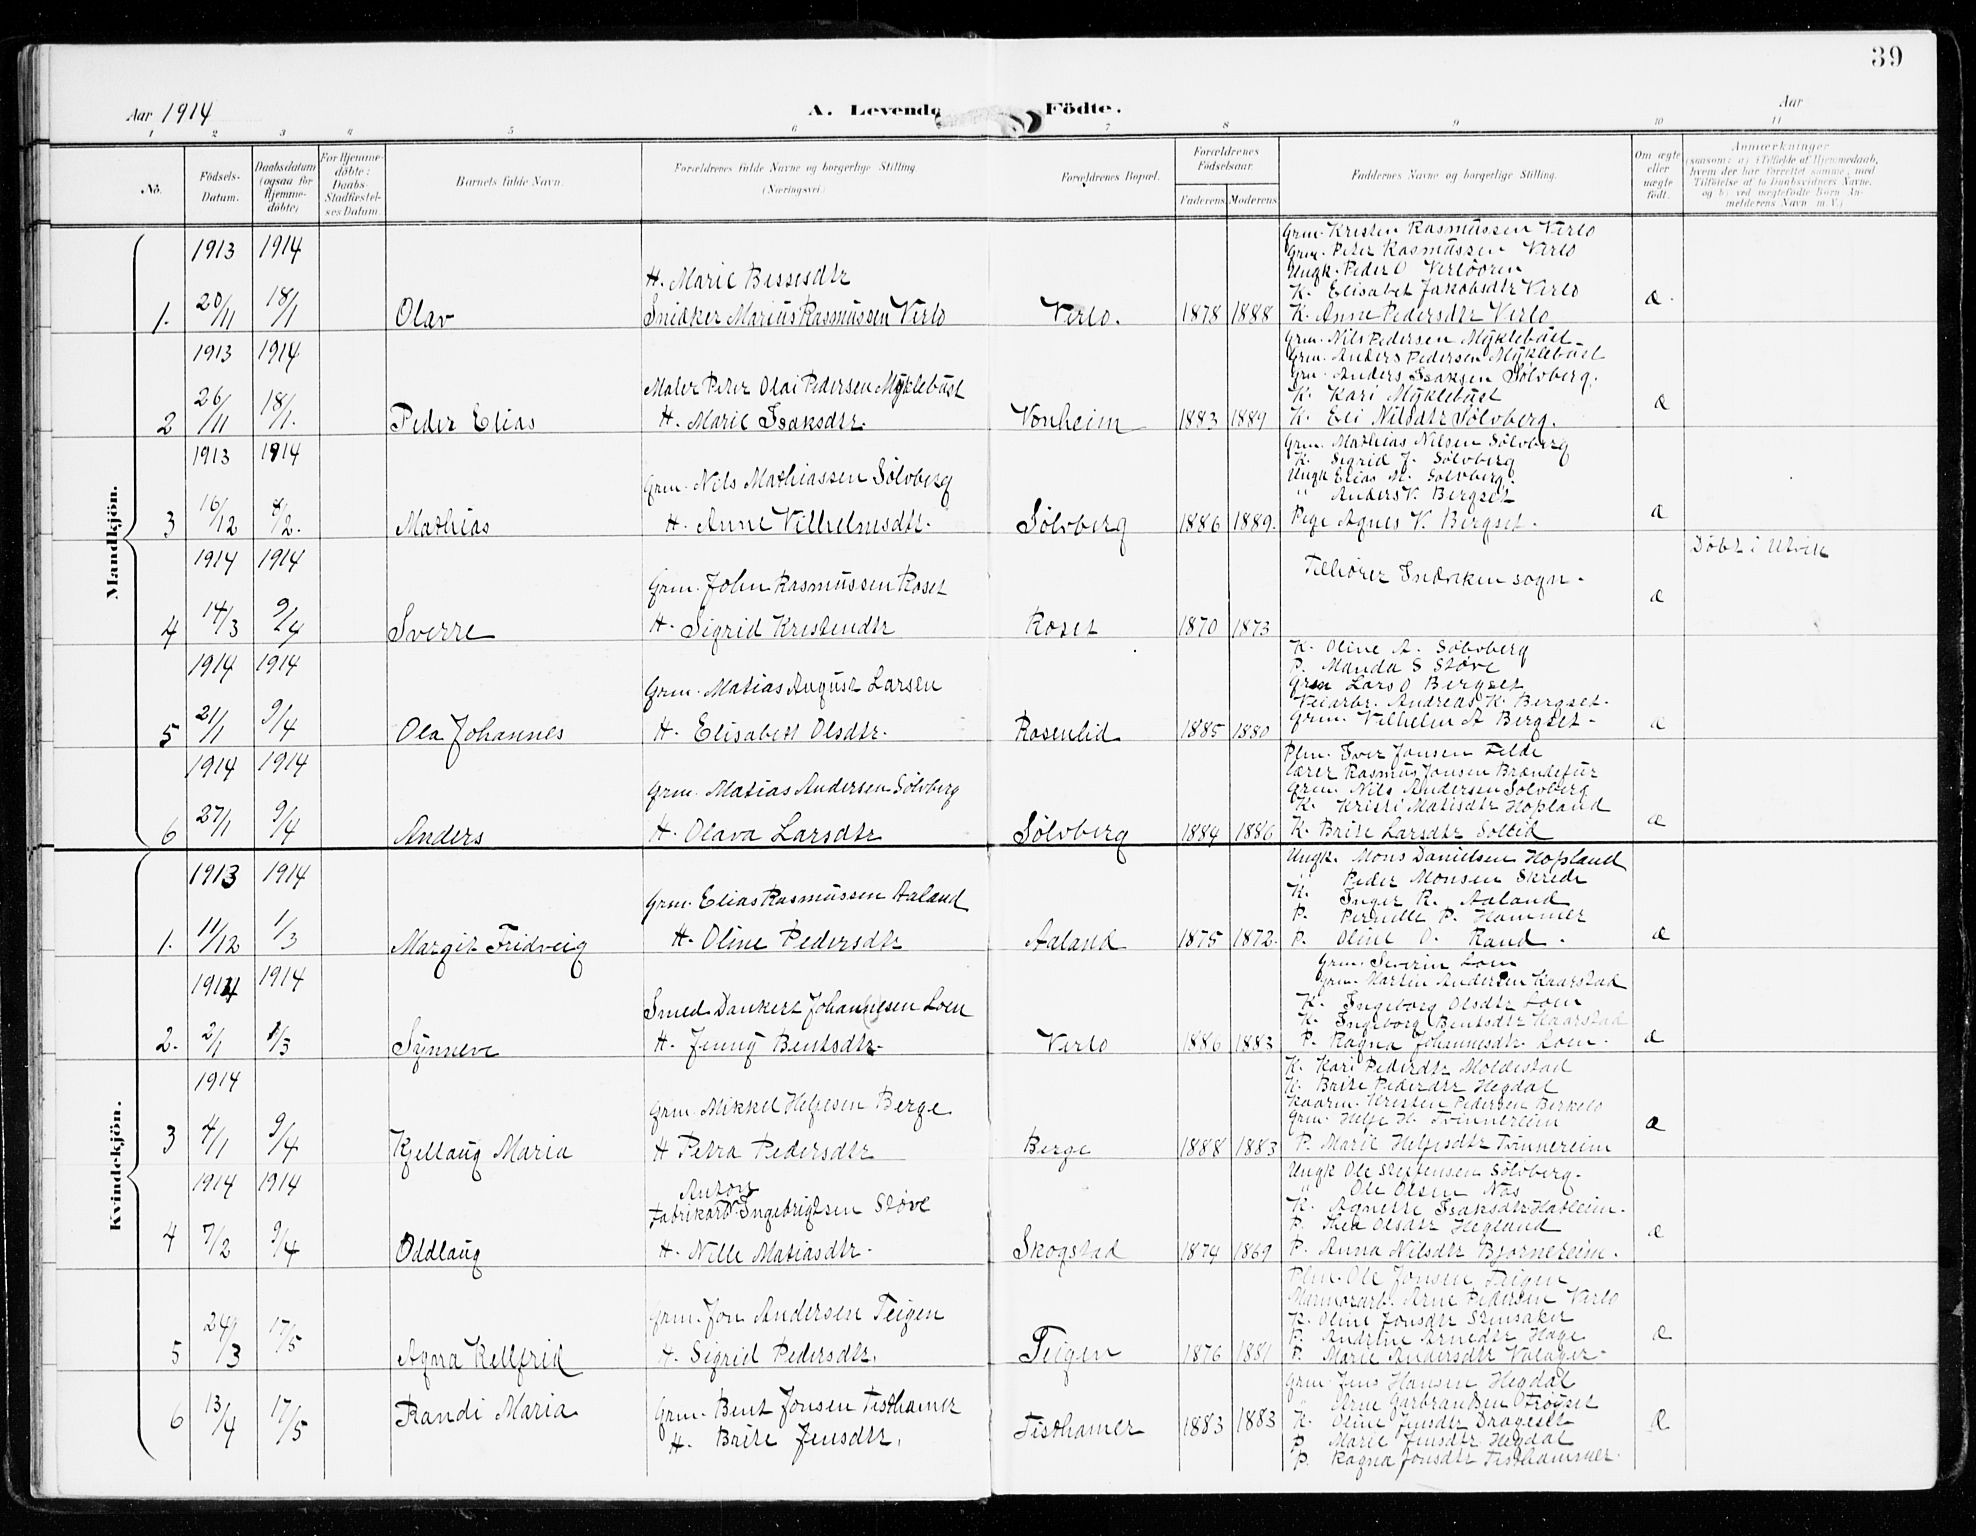 39
Aar 1914
A. Levende Födte.
Aar
1 2 3 4 5 6 7 8 9 10 11
No.
Födsels-Datum.
Daabsdatum (ogsaa for Hjemme-döbte)
For Hjemme-döbte: Daabs Stadfæstel-ses Datum
Barnets fulde Navn.
Forældrenes fulde Navne og borgerlige Stilling. (Næringsvei)
Forældrenes Bopæl.
Forældrenes Födselsaar.
Faderens Moderens
Faddernes Navne og borgerlige Stilling.
Om ægte eller uægte födt.
Anmærkninger (saasom: a) i Tilfælde af Hjemmedaab, hvem der har forrettet samme, med Tilföielse af to Daabsvidners Navne, og b) ved uægtefödte Börn Anmelderens Navn m. V.)
Mandkjön.
1913 1914
1. 20/11 18/1 Olav
H. Marie Bessesdtr
Snidker Marius Rasmussen Verlo
Verlo. 1878 1888
Grm. Kristen Rasmussen Verlo
Grm. Peter Rasmussen Verlo
Ungk. Peder O Verlöoren
K. Elisabet Jakobsdtr Verlo
K. Anne Pedersdtr Verlo
æ.
1913 1914
2 26/11 18/1. Peder Elias
Maler Peter Olai Pedersen Myklebust
H. Marie Isaksdtr.
Vonheim 1883 1889
Grm. Nils Pedersen Myklebust
Grm. Anders Pedersen Myklebust
Grm. Anders Isaksen Sølvberg.
K. Kari Myklebust
K. Eli Nilsdtr Sølvberg.
æ
1913 1914
3 16/12 8/2. Mathias
Grm. Nils Mathiassen Sølvberg
H. Anne Vilhelmsdtr.
Sølvberg 1886 1889.
Grm. Mathias Nilsen Sølvberg
K. Sigrid J. Sølvberg
Ungk Elias M. Sølvberg.
" Anders V. Bergset
Pige Agnes V. Bergset.
æ
1914 1914
4 14/3 9/4 Sverre
Grm. John Rasmussen Roset
H. Sigrid Kristendtr
Roset 1870 1873
Tilhører Indviken sogn.
æ
Døbt i Utvik
1914 1914
5 21/1 9/4 Ola Johannes
Grm. Matias August Larsen
H. Elisabett Olsdtr.
Rosenlid 1885 1880
K. Oline A. Sølvberg
P. Manda S Støve
Grm Lars O Bergset
Veiarbr. Andreas K. Bergset.
Grm. Vilhelm A Bergset.
æ
1914 1914
6 27/1 9/4 Anders
Grm. Matias Andersen Sølvberg
H. Olava Larsdtr
Sølvberg 1884 1886
Plm. Iver Jonsen Felde
Lærer Rasmus Jonsen Brandefur
Grm. Nils Andersen Sølvberg
K. Kristi Matisdtr Hopland
K. Brite Larsdtr Sollid
æ
Kvindekjön.
1913 1914
1. 11/12 1/3 Margit Fridveig
Grm. Elias Rasmussen Aaland
H. Oline Pedersdtr
Aaland 1875 1872.
Ungk. Mons Danielsen Hopland
" Peder Monsen Skrede
K. Inger R. Aaland
P. Pernille P. Hammer
P. Oline O. Rand.
æ
1914 1914
2. 2/1 8/3 Synneve
Smed Dankert Johannesen Loen
H. Jenny Bentsdtr
Verlo 1886 1883
Grm. Severin Loen
Grm. Martin Andersen Kaarstad
K. Ingeborg Olsdtr Loen
K. Ingeborg Bentsdtr Kaarstad
P. Ragna Johannesdtr Loen.
æ
1914
3 4/1 9/4 Kjellaug Maria
Grm. Mikkel Helgesen Berge
H Petra Pedersdtr
Berge 1888 1883
K. Kari Pedersdtr Moldestad
K. Brite Pedersdtr Hegdal
Kaarm. Kristen Pedersen Berkelo
Grm. Helge H. Tvinnereim
P. Marie Helgesdtr Tvinnereim
æ
1914 1914
4 7/2 9/4 Oddlaug
Anton
Fabrikarb. Ingebrigtsen Støve
H. Nille Matiasdtr.
Skogstad 1874 1869
Ungk Ole Steffensen Sølvberg.
" Ole Olsen Nos
K. Agnette Isaksdtr Havleim.
P. Thea Olsdtr Hegland
P. Anna Nilsdtr Bjørnereim.
æ
5 24/3 17/5 Agna Kellfrid
Grm. Jon Andersen Teigen
H. Sigrid Pedersdtr.
Teigen 1876 1881
Plm. Ole Jonsen Teigen
Marmorarb. Arne Pedersen Verlo
K. Oline Jonsdtr Stensaker
P. Andrine Arnedtr Hage
P. Marie Andersdtr
æ
6 13/4 17/5 Randi Maria
Grm. Bent Jonsen Tisthamer
H. Brite Jensdtr.
Tisthamer 1883 1883
Grm. Jens Hansen Hegdal
" Arne Garbrandsen Otrøyset
K. Oline Jensdtr Drageset
P. Marie Jensdtr Hegdal
P. Ragna Jonsdtr Tisthammer.
Æ